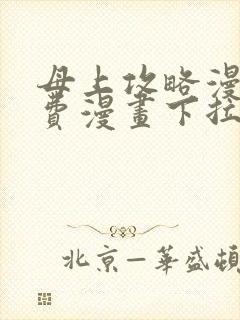 母上攻略漫
費漫畫下拉
北京—華盛頓